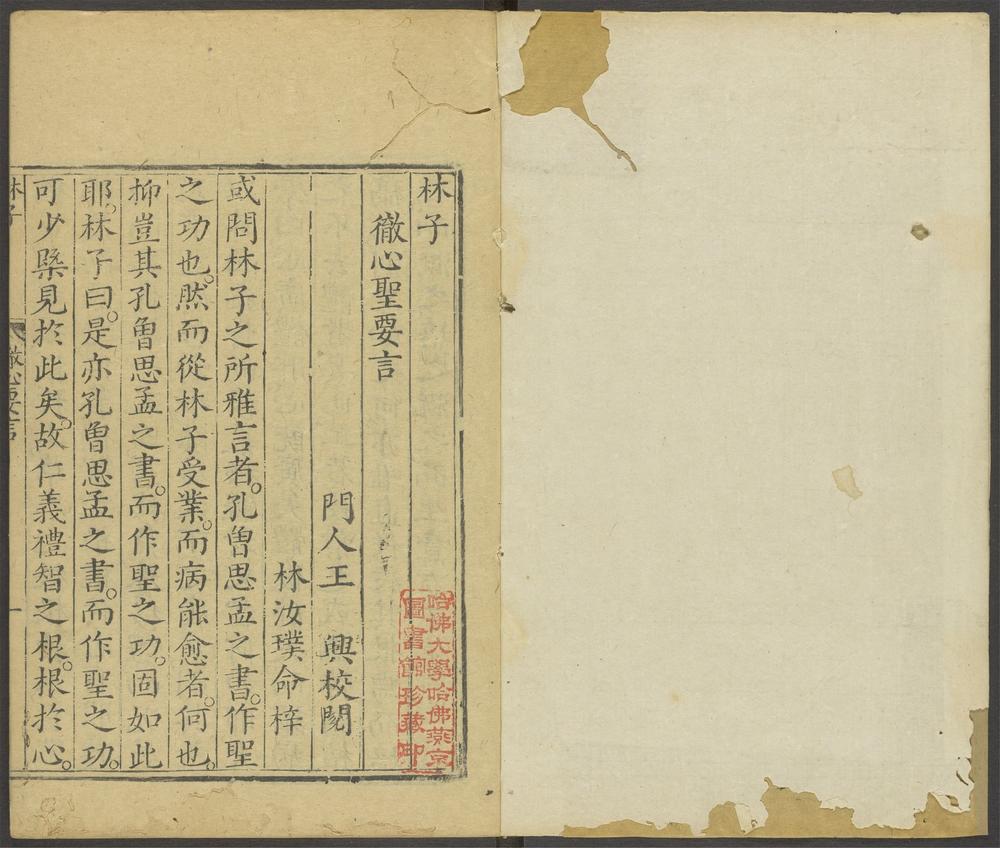 林子
徹心聖要言
門人王　興校閱
林汝璞命梓
或問林子之所雅言者。孔曾思孟之書。作聖
之功也。然而從林子受業。而病能愈者。何也。
抑豈其孔曾思孟之書。而作聖之功。固如此
耶。林子曰。是亦孔曾思孟之書。而作聖之功。
可少槩見於此矣。故仁義禮智之根。根於心。
林子
徹心要言
一
哈佛大學哈佛燕京
圖書館珍藏印